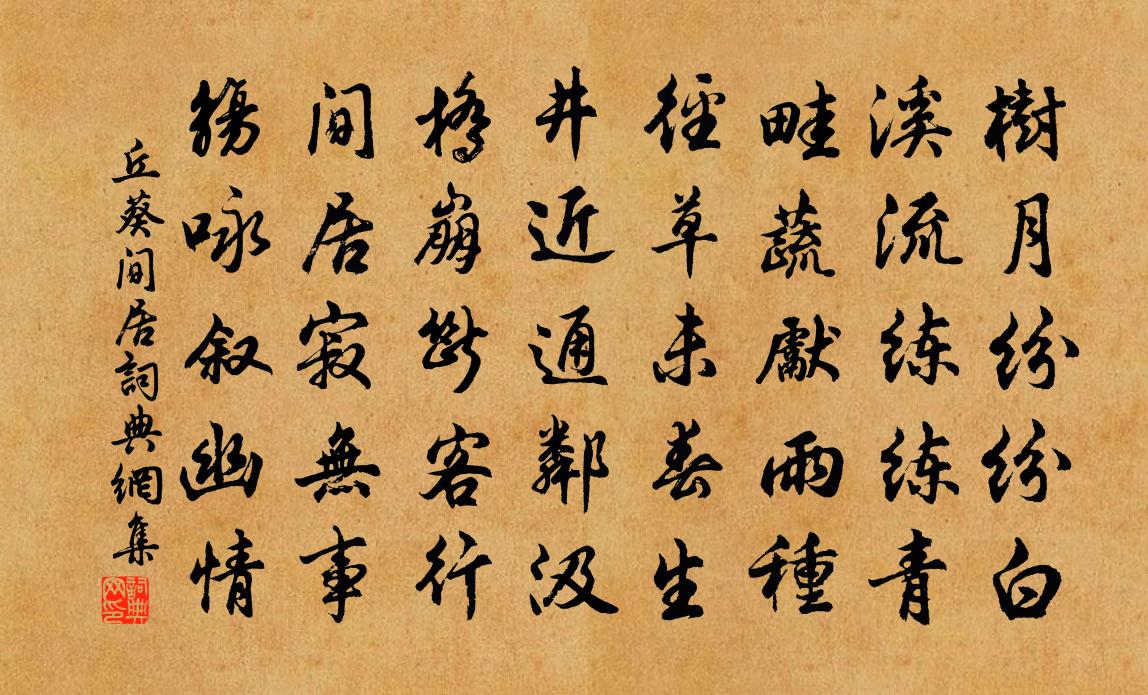 樹月紛紛白
溪流練練青
畦蔬獻雨種
徑草未春生
井近通鄰汲
橋崩斷客行
間居寂無事
觴咏叙幽情
丘葵間居詞典網集
詞典网印